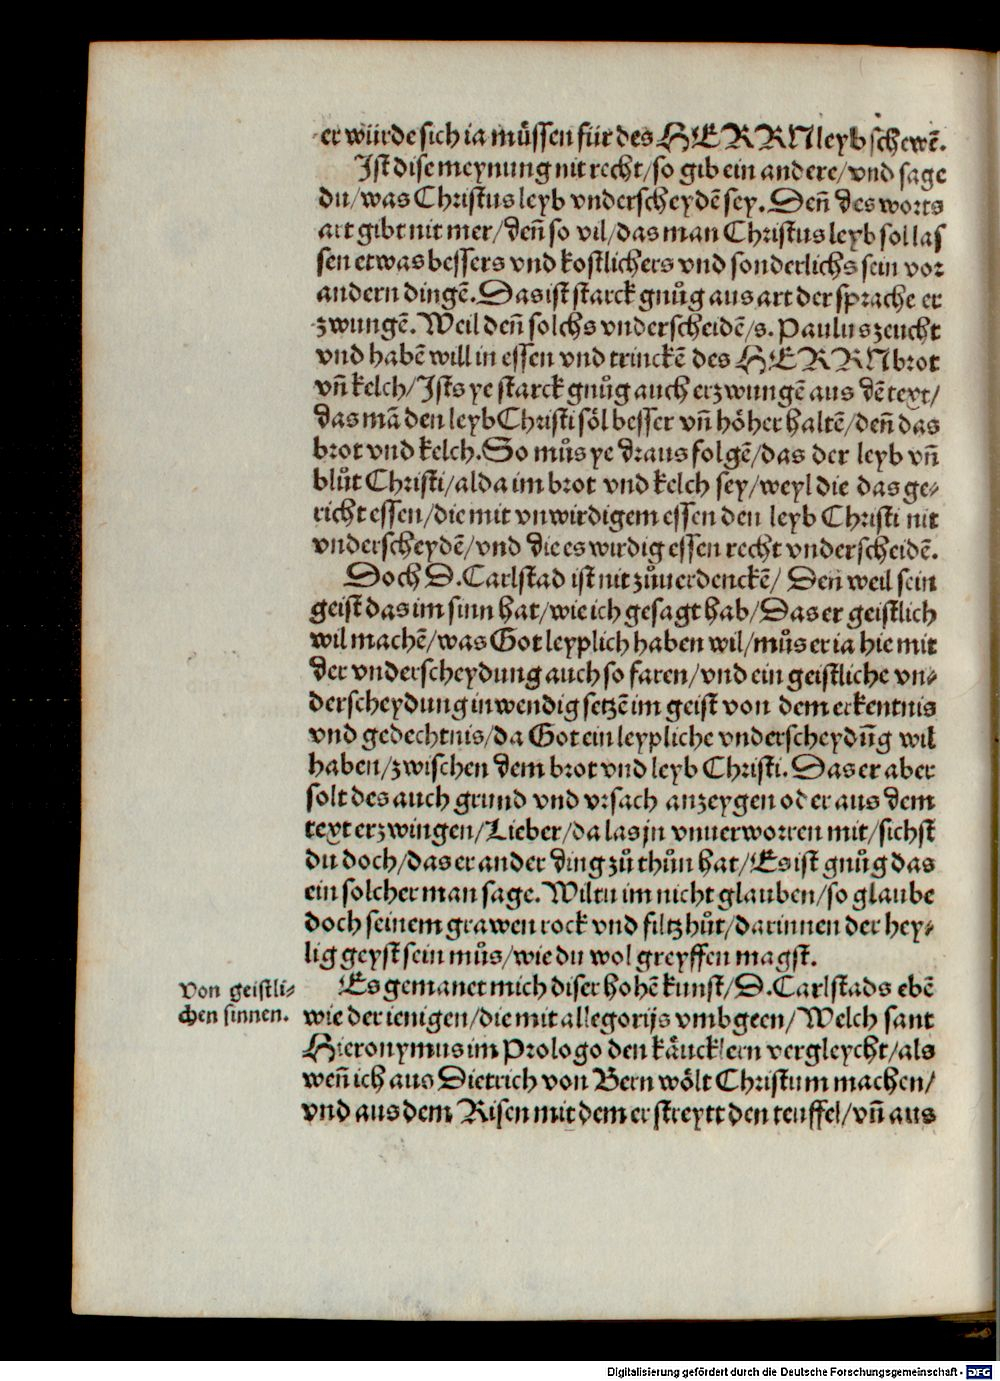 er würde sich ia müssen für des HERRN leyb schewē.
Ist dise meynung nit recht/so gib ein andere/vnd sage
du/was Christus leyb vnderscheydē sey. Deñ des worts
art gibt nit mer/deñ so vil/das man Christus leyb sol las
sen etwas bessers vnd kostlichers vnd sonderlichs sein vor
andern dingē. Das ist starck gnůg aus art der sprache er
zwungē. Weil deñ solchs vnderscheidē/s. Paulus zeucht
vnd habē will in essen vnd trinckē des HERRN brot
vñ kelch/Ists ye starck gnůg auch erzwungē aus dē text/
das mā den leyb Christi söl besser vñ höher haltē/deñ das
brot vnd kelch. So můs ye draus folgē/das der leyb vñ
blůt Christi/alda im brot vnd kelch sey/weyl die das ge-
richt essen/die mit vnwirdigem essen den leyb Christi nit
vnderscheydē/vnd die es wirdig essen recht vnderscheidē.
Doch D. Carlstad ist nit zůuerdenckē/ Den weil sein
geist das im sinn hat/wie ich gesagt hab/Das er geistlich
wil machē/was Got leyplich haben wil/můs er ia hie mit
der vnderscheydung auch so faren/vnd ein geistliche vn-
derscheydung inwendig setzē im geist von dem erkentnis
vnd gedechtnis/da Got ein leypliche vnderscheydūg wil
haben/zwischen dem brot vnd leyb Christi. Das er aber
solt des auch grund vnd vrsach anzeygen oder aus dem
text erzwingen/Lieber/da las jn vnuerworren mit/sichst
du doch/das er ander ding zů thůn hat/Es ist gnůg das
ein solcher man sage. Wiltu im nicht glauben/so glaube
doch seinem grawen rock vnd filtzhůt/darinnen der hey-
lig geyst sein můs/wie du wol greyffen magst.
Von geistli-
chen sinnen.
Es gemanet mich diser hohē kunst/D. Carlstads ebē
wie der ienigen/die mit allegorijs vmbgeen/Welch sant
Hieronymus im Prologo den käucklern vergleycht/als
weñ ich aus Dietrich von Bern wölt Christum machen/
vnd aus dem Risen mit dem er streytt den teuffel/vñ aus
Digitalisierung gefördert durch die Deutsche Forschungsgemeinschaft - DFG